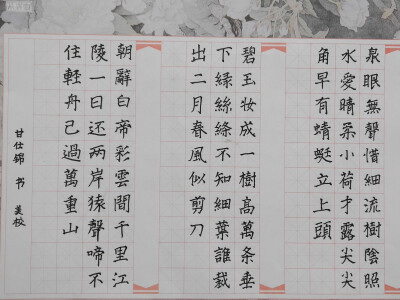 泉眼無聲惜細流樹陰照
水愛晴柔小荷才露尖尖
角早有蜻蜓立上頭
碧玉妝成一樹高萬条垂
下緑絲絛不知細葉誰裁
出二月春風似剪刀
朝辭白帝彩雲間千里江
陵一日还两岸猿聲啼不
住輕舟已過萬重山
甘仕錦 书 美校